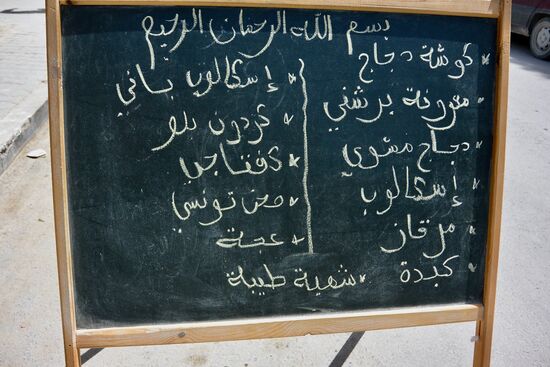 بسم الله الرحمان الرحيم
* كوشة دجاج
* مقرونة برشفي
* دجاج مشوي
* إسكالوب
* مرقاز
* كبدة
* إسكالوب باني
* كردون بلو
* كفتاجي
* صحن تونسي
* عجة
* شهية طيبة